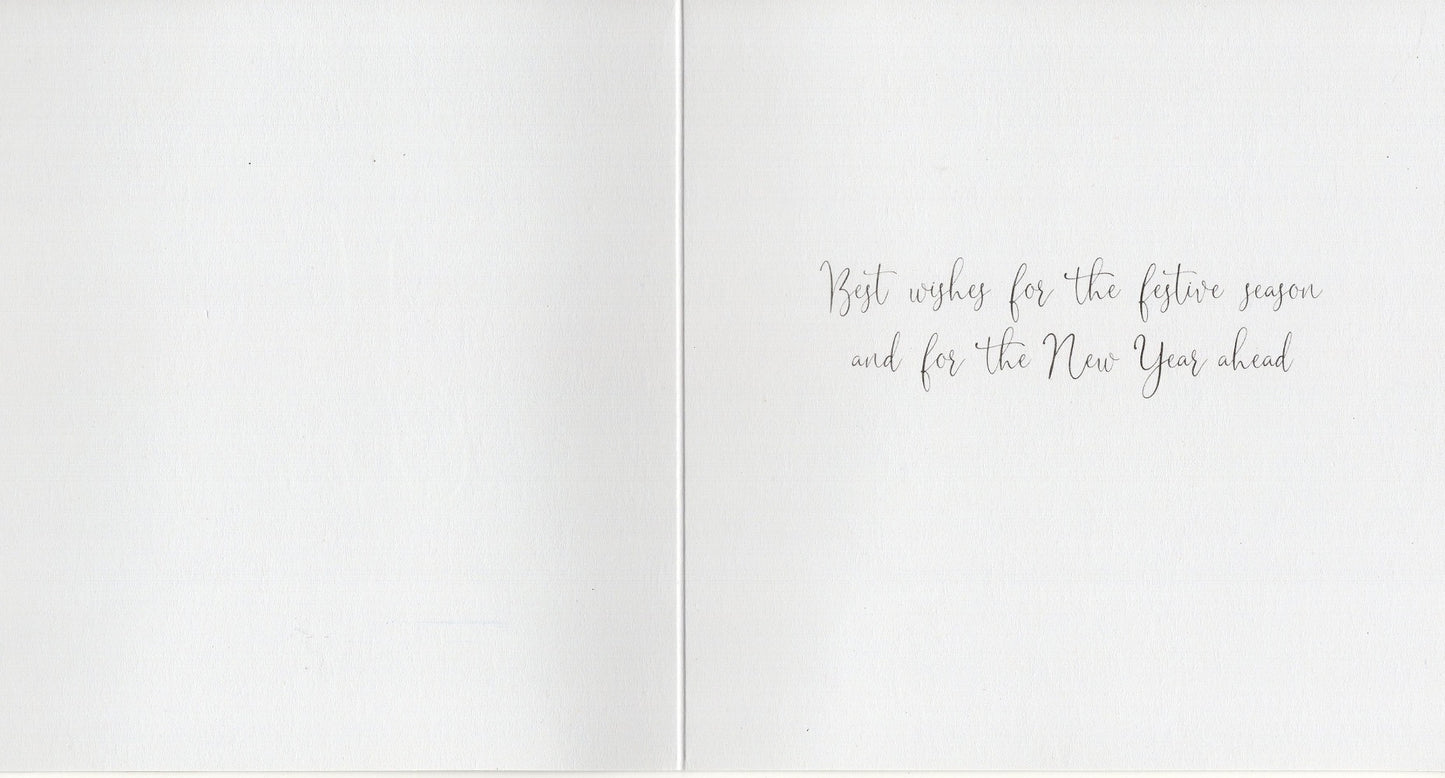 Best wishes for the festive season
and for the New Year ahead